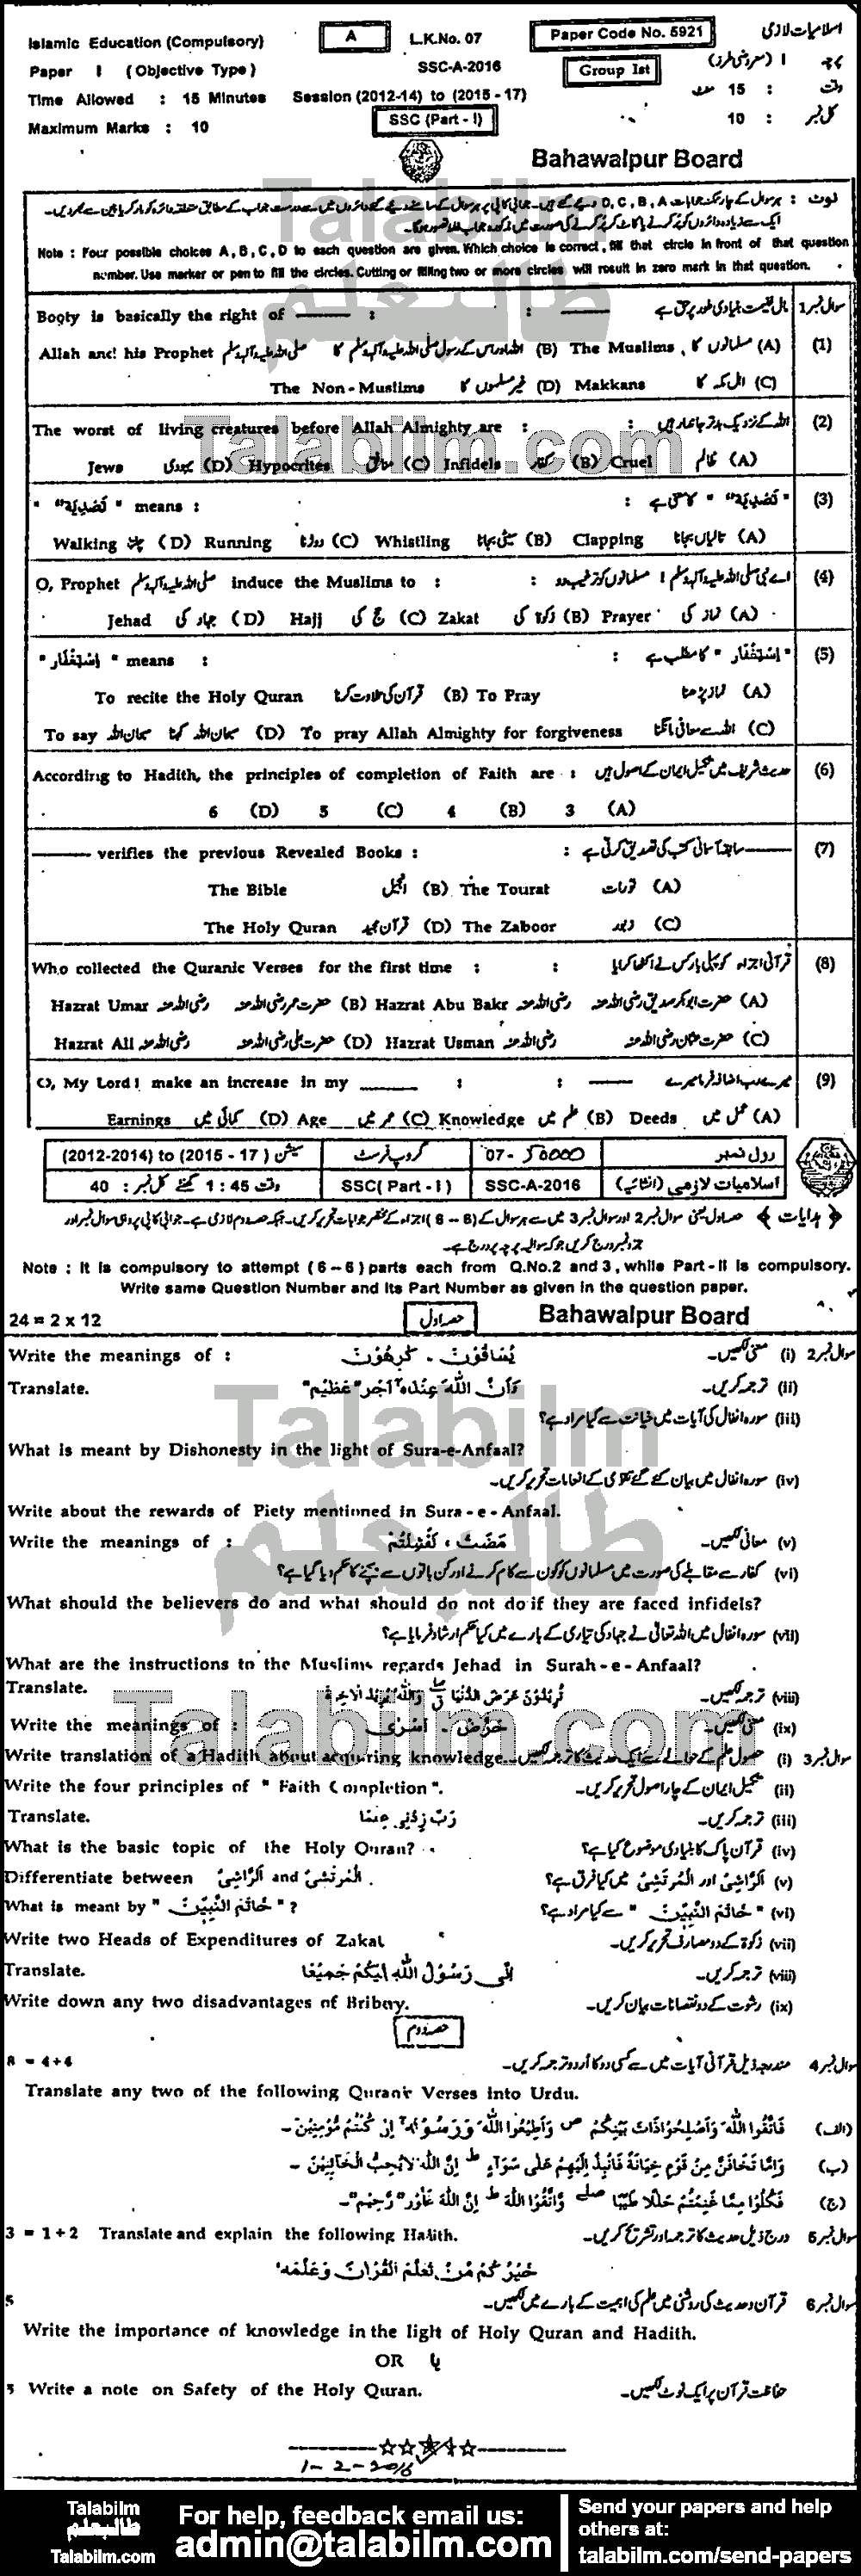 Islamic Education (Compulsory) A L.K.No. 07 Paper Code No. 5921 اسلامیات لازمی
Paper I (Objective Type) SSC-A-2016 Group Ist پرچہ I (معروضی طرز)
Time Allowed : 15 Minutes Session (2012-14) to (2015 - 17) وقت : 15 منٹ
Maximum Marks : 10 SSC (Part - I) کل نمبر : 10
Bahawalpur Board
Note : Four possible choices A, B, C, D to each question are given. Which choice is correct, fill that circle in front of that question
number. Use marker or pen to fill the circles. Cutting or filling two or more circles will result in zero mark in that question.
Booty is basically the right of ——— : : ——— مال غنیمت بنیادی طور پر حق ہے سوال نمبر 1
Allah and his Prophet صلی اللہ علیہ وآلہ وسلم اللہ اور اس کے رسول صلی اللہ علیہ وآلہ وسلم کا (B) The Muslims مسلمانوں کا (A) (1)
The Non-Muslims غیر مسلموں کا (D) Makkans اہل مکہ کا (C)
The worst of living creatures before Allah Almighty are : : اللہ کے نزدیک بدتر جاندار ہیں (2)
Jews یہودی (D) Hypocrites منافق (C) Infidels کفار (B) Cruel ظالم (A)
" تَصْدِيَةً " means : : " تَصْدِيَةً " کا معنی ہے (3)
Walking چلنا (D) Running دوڑنا (C) Whistling سیٹی بجانا (B) Clapping تالیاں بجانا (A)
O, Prophet صلی اللہ علیہ وآلہ وسلم induce the Muslims to : : اے نبی صلی اللہ علیہ وآلہ وسلم ! مسلمانوں کو ترغیب دو (4)
Jehad جہاد کی (D) Hajj حج کی (C) Zakat زکوٰۃ کی (B) Prayer نماز کی (A)
" اِسْتِغْفَار " means : : " اِسْتِغْفَار " کا مطلب ہے (5)
To recite the Holy Quran قرآن کی تلاوت کرنا (B) To Pray نماز پڑھنا (A)
To say سبحان اللہ سبحان اللہ کہنا (D) To pray Allah Almighty for forgiveness اللہ سے معافی مانگنا (C)
According to Hadith, the principles of completion of Faith are : حدیث شریف میں تکمیل ایمان کے اصول ہیں (6)
6 (D) 5 (C) 4 (B) 3 (A)
——— verifies the previous Revealed Books : : ——— سابقہ آسمانی کتب کی تصدیق کرتی ہے (7)
The Bible انجیل (B) The Tourat تورات (A)
The Holy Quran قرآن مجید (D) The Zaboor زبور (C)
Who collected the Quranic Verses for the first time : : قرآنی اجزاء کو پہلی بار کس نے اکٹھا کیا (8)
Hazrat Umar رضی اللہ عنہ حضرت عمر رضی اللہ عنہ (B) Hazrat Abu Bakr رضی اللہ عنہ حضرت ابوبکر صدیق رضی اللہ عنہ (A)
Hazrat Ali رضی اللہ عنہ حضرت علی رضی اللہ عنہ (D) Hazrat Usman رضی اللہ عنہ حضرت عثمان رضی اللہ عنہ (C)
O, My Lord! make an increase in my ——— : : ——— میرے رب اضافہ فرما میرے (9)
Earnings کمائی میں (D) Age عمر میں (C) Knowledge علم میں (B) Deeds عمل میں (A)
(2012-2014) to (2015 - 17) سیشن گروپ فرسٹ 07- 50000 رول نمبر
40 : کل نمبر 1:45 گھنٹے وقت SSC( Part - I ) SSC-A-2016 اسلامیات لازمی (انشائیہ)
Note : It is compulsory to attempt (6–6) parts each from Q.No.2 and 3, while Part-II is compulsory.
Write same Question Number and its Part Number as given in the question paper.
24 = 2 x 12 حصہ اول Bahawalpur Board
Write the meanings of : يُسَاقُوْنَ - كٰرِهُوْنَ معنی لکھیں۔ (i) سوال نمبر 2
Translate. وَاَنَّ اللّٰهَ عِنْدَهٗ اَجْرٌ عَظِيْمٌ ترجمہ کریں۔ (ii)
سورہ انفال کی آیات میں خیانت سے کیا مراد ہے؟ (iii)
What is meant by Dishonesty in the light of Sura-e-Anfaal?
سورہ انفال میں بیان کئے گئے تقویٰ کے انعامات تحریر کریں۔ (iv)
Write about the rewards of Piety mentioned in Sura-e-Anfaal.
Write the meanings of : مَضَتْ ، لَفَشِلْتُمْ معانی لکھیں۔ (v)
کفار سے مقابلے کی صورت میں مسلمانوں کو کون سے کام کرنے اور کن باتوں سے بچنے کا حکم دیا گیا ہے؟ (vi)
What should the believers do and what should do not do if they are faced infidels?
سورہ انفال میں اللہ تعالیٰ نے جہاد کی تیاری کے بارے میں کیا حکم ارشاد فرمایا ہے؟ (vii)
What are the instructions to the Muslims regards Jehad in Surah-e-Anfaal?
Translate. تُرِيْدُوْنَ عَرَضَ الدُّنْيَا وَاللّٰهُ يُرِيْدُ الْاٰخِرَةَ ترجمہ لکھیں۔ (viii)
Write the meanings of : حَرِّضْ - اَسْرٰى معنی لکھیں۔ (ix)
Write translation of a Hadith about acquiring knowledge. حصول علم کے حوالے سے ایک حدیث کا ترجمہ لکھیں۔ (i) سوال نمبر 3
Write the four principles of " Faith Completion ". تکمیل ایمان کے چار اصول تحریر کریں۔ (ii)
Translate. رَبِّ زِدْنِیْ عِلْمًا ترجمہ کریں۔ (iii)
What is the basic topic of the Holy Quran? قرآن پاک کا بنیادی موضوع کیا ہے؟ (iv)
Differentiate between اَلرَّاشِیْ and اَلْمُرْتَشِیْ . اَلرَّاشِیْ اور اَلْمُرْتَشِیْ میں کیا فرق ہے؟ (v)
What is meant by " خَاتَمَ النَّبِيّٖنَ " ? " خَاتَمَ النَّبِيّٖنَ " سے کیا مراد ہے؟ (vi)
Write two Heads of Expenditures of Zakat زکوٰۃ کے دو مصارف تحریر کریں۔ (vii)
Translate. اِنِّیْ رَسُوْلُ اللّٰهِ اِلَيْكُمْ جَمِيْعًا ترجمہ کریں۔ (viii)
Write down any two disadvantages of Bribey. رشوت کے دو نقصانات بیان کریں۔ (ix)
حصہ دوم
8 = 4+4 مندرجہ ذیل قرآنی آیات میں سے کسی دو کا اردو ترجمہ کریں۔ سوال نمبر 4
Translate any two of the following Quranic Verses into Urdu.
(الف) فَاتَّقُوا اللّٰهَ وَاَصْلِحُوْا ذَاتَ بَيْنِكُمْ وَاَطِيْعُوا اللّٰهَ وَرَسُوْلَهٗ اِنْ كُنْتُمْ مُّؤْمِنِيْنَ۔
(ب) وَاِمَّا تَخَافَنَّ مِنْ قَوْمٍ خِيَانَةً فَانْۢبِذْ اِلَيْهِمْ عَلٰى سَوَآءٍ اِنَّ اللّٰهَ لَا يُحِبُّ الْخَآئِنِيْنَ۔
(ج) فَكُلُوْا مِمَّا غَنِمْتُمْ حَلٰلًا طَيِّبًا وَّاتَّقُوا اللّٰهَ اِنَّ اللّٰهَ غَفُوْرٌ رَّحِيْمٌ۔
3 = 1+2 Translate and explain the following Hadith. درج ذیل حدیث کا ترجمہ اور تشریح کریں۔ سوال نمبر 5
خَيْرُكُمْ مَّنْ تَعَلَّمَ الْقُرْاٰنَ وَعَلَّمَهٗ
5 قرآن و حدیث کی روشنی میں علم کی اہمیت کے بارے میں لکھیں۔ سوال نمبر 6
Write the importance of knowledge in the light of Holy Quran and Hadith.
OR یا
5 Write a note on Safety of the Holy Quran. حفاظت قرآن پر ایک نوٹ لکھیں۔
1-2-2016
Talabilm
طالبعلم
Talabilm.com
For help, feedback email us:
admin@talabilm.com
Send your papers and help
others at:
talabilm.com/send-papers